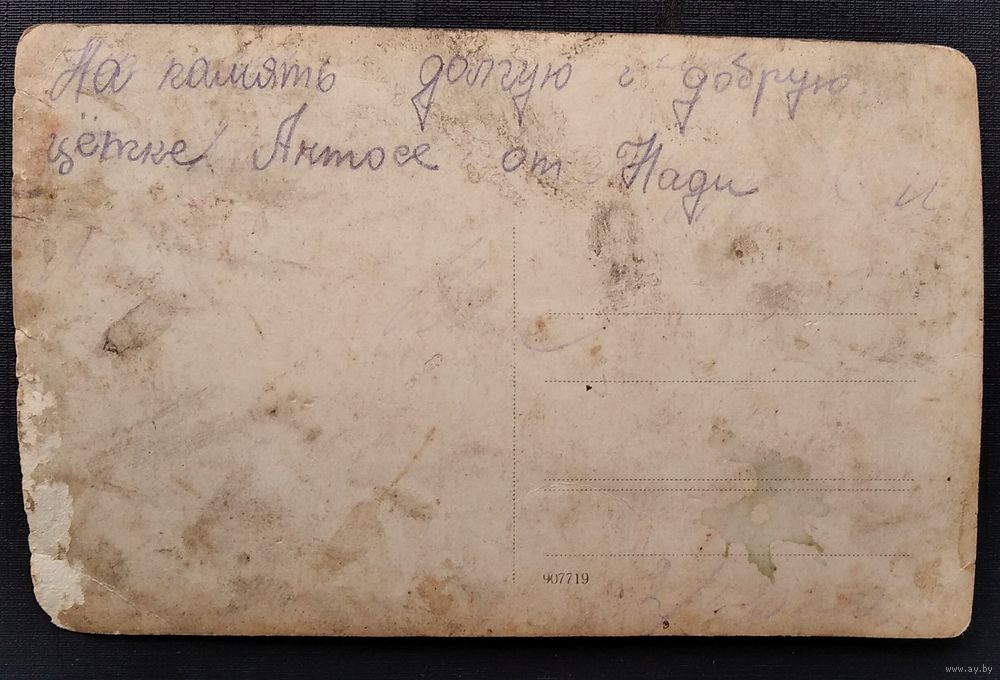 На память долгую и добрую
цётке Антосе от Нади и
907719
www.ay.by